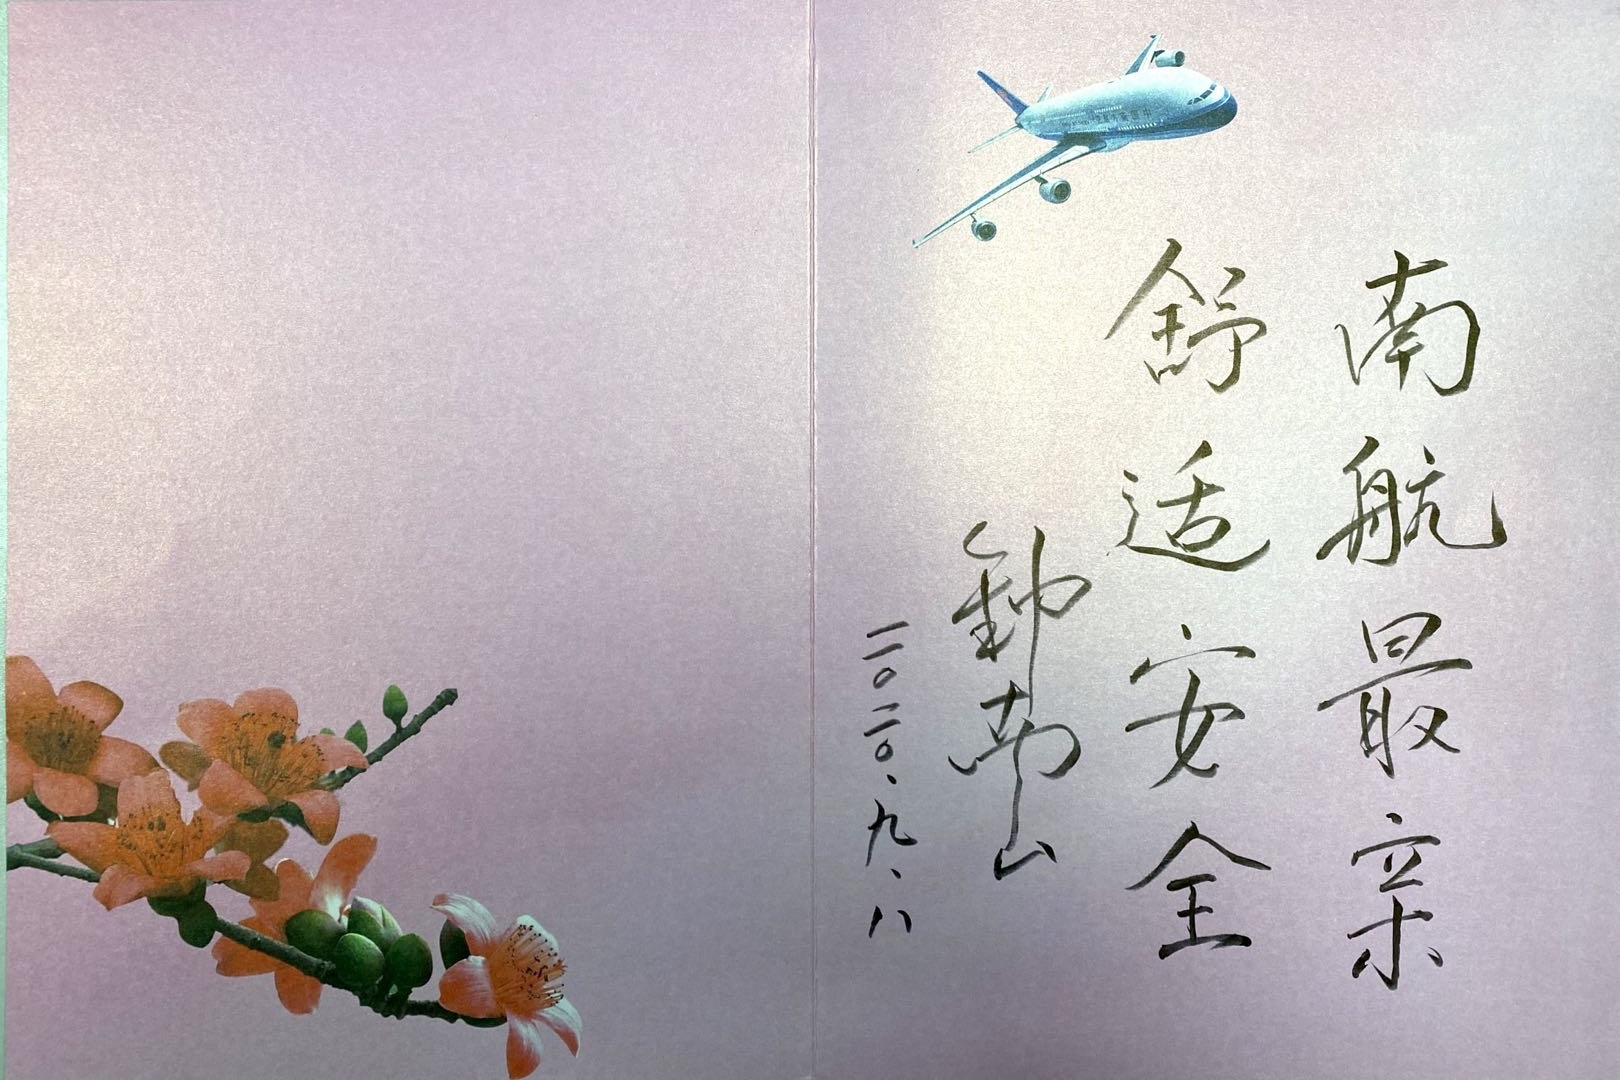 南航最亲
舒适安全
钟南山
二〇二〇.九.八